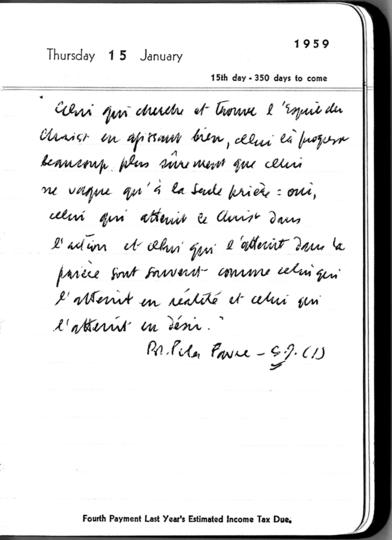 1959
Thursday 15 January
15th day - 350 days to come
"Celui qui cherche et trouve l'Esprit du
Christ en agissant bien, celui là progresse
beaucoup plus sûrement que celui
ne vaque qu'à la seule prière = oui,
celui qui atteint le Christ dans
l'action et celui qui l'atteint dans la
prière sont souvent comme celui qui
l'atteint en réalité et celui qui
l'atteint en désir."
Favre - S.J. (1)
Fourth Payment Last Year's Estimated Income Tax Due.